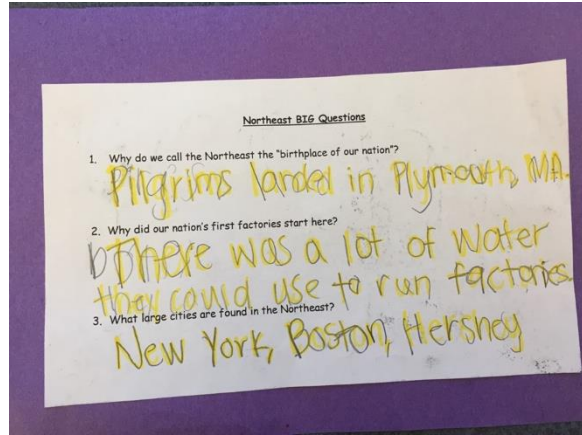 Northeast BIG Questions
1. Why do we call the Northeast the "birthplace of our nation"?
Pilgrims landed in Plymouth, MA.
2. Why did our nation's first factories start here?
There was a lot of water
they could use to run factories.
3. What large cities are found in the Northeast?
New York, Boston, Hershey